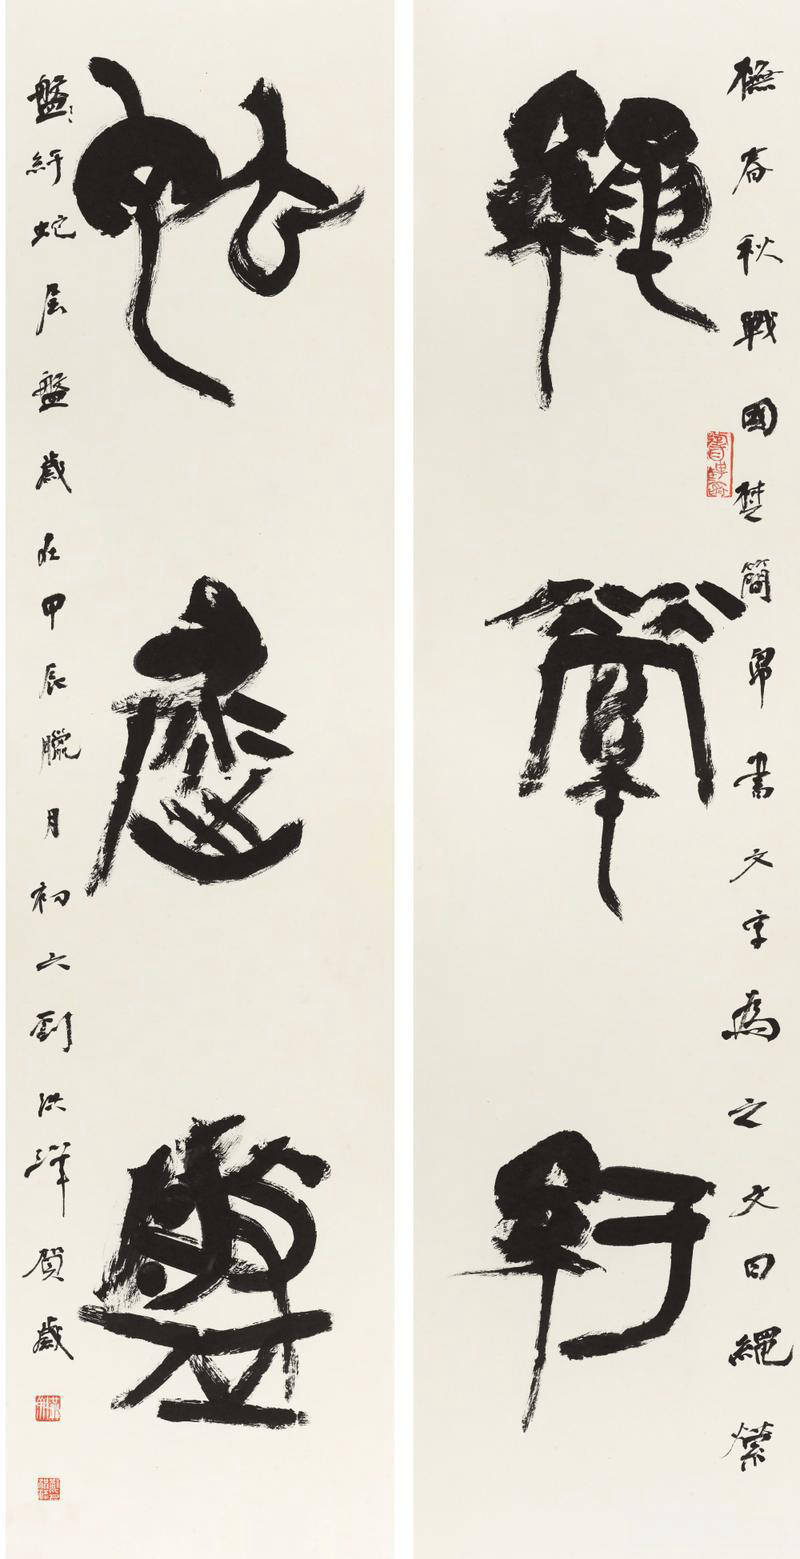 橅春秋戰國楚簡帛書文字為之文曰繩縈
繩縈紆
蛇屈盤
盤紆蛇屈盤歲在甲辰臘月初六劉洪洋賀歲